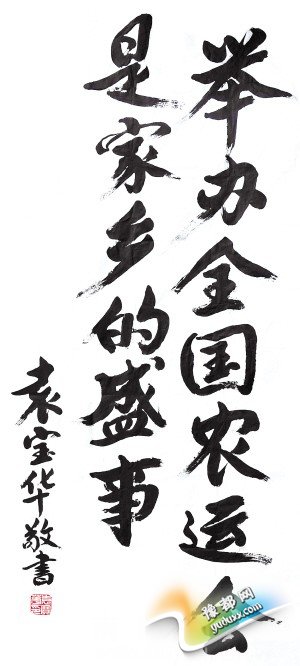 举办全国农运会
是家乡的盛事
袁宝华敬书
豫都网
yuduxx.com